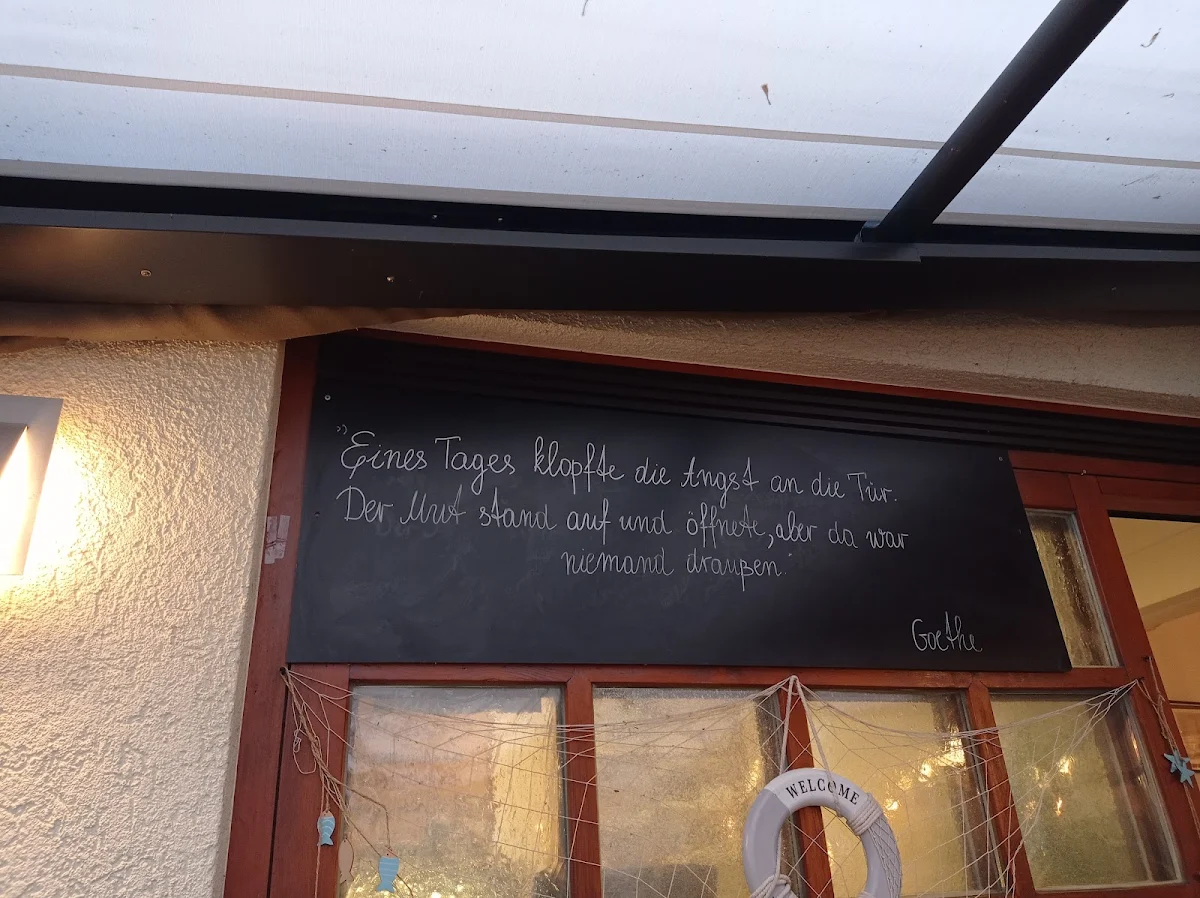 „Eines Tages klopfte die Angst an die Tür.
Der Mut stand auf und öffnete, aber da war
niemand draußen."
Goethe
WELCOME